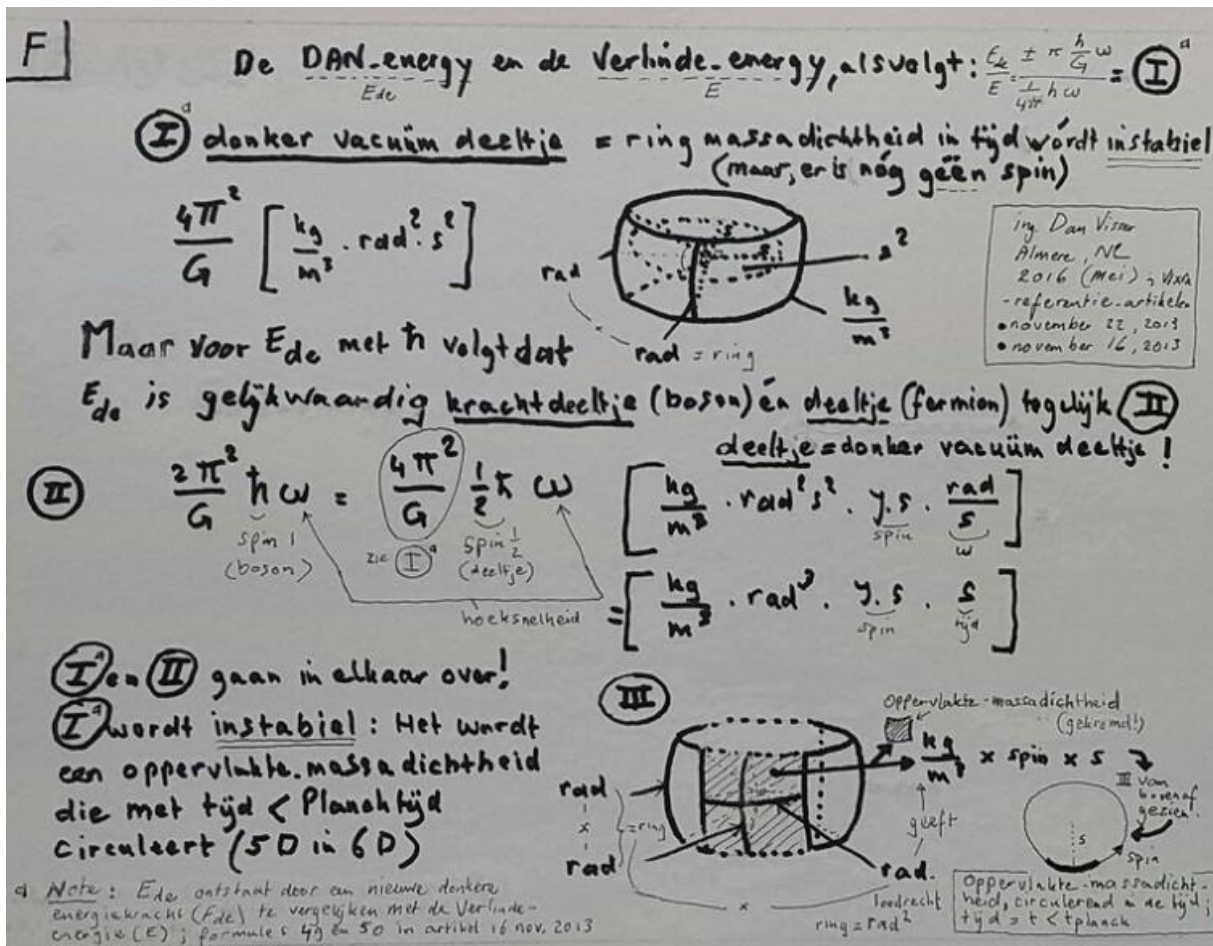 F
De DAN-energy en de Verlinde-energy, alsvolgt: Ede/E = ± π ħ/G ω / 1/4π h ω = I a
Ede E
I a donker vacuüm deeltje = ring massadichtheid in tijd wórdt instabiel
(maar, er is nóg géén spin)
4π²/G [kg/m³ · rad² · s²]
rad
s²
kg/m³
rad = ring
ing. Dan Visser
Almere, NL
2016 (mei), vixra
-referentie-artikelen
• november 22, 2013
• november 16, 2013
Maar voor Ede met ħ volgt dat
Ede is gelijkwaardig krachtdeeltje (boson) én deeltje (fermion) tegelijk II
deeltje = donker vacuüm deeltje!
II 2π²/G ħ ω = 4π²/G ½ ħ ω [kg/m³ · rad² s² · J.s · rad/s]
spin 1
(boson)
zie I a
spin ½
(deeltje)
spin ω
hoeksnelheid
= [kg/m³ · rad³ · J.s · s]
spin tijd
I a en II gaan in elkaar over!
I a wordt instabiel: Het wordt
een oppervlakte-massadichtheid
die met tijd < Plancktijd
circuleert (5D in 6D)
III
Oppervlakte-massadichtheid
(gekromd!)
kg/m³ × spin × s
geeft
rad
x
rad
= ring
x
rad.
loodrecht
ring = rad²
III van
bovenaf
gezien.
s
spin
Oppervlakte-massadicht-
heid, circulerend in de tijd;
tijd = t < tplanck
a Note: Ede ontstaat door een nieuwe donkere
energiekracht (Fde) te vergelijken met de Verlinde-
energie (E); formules 49 en 50 in artikel 16 nov. 2013